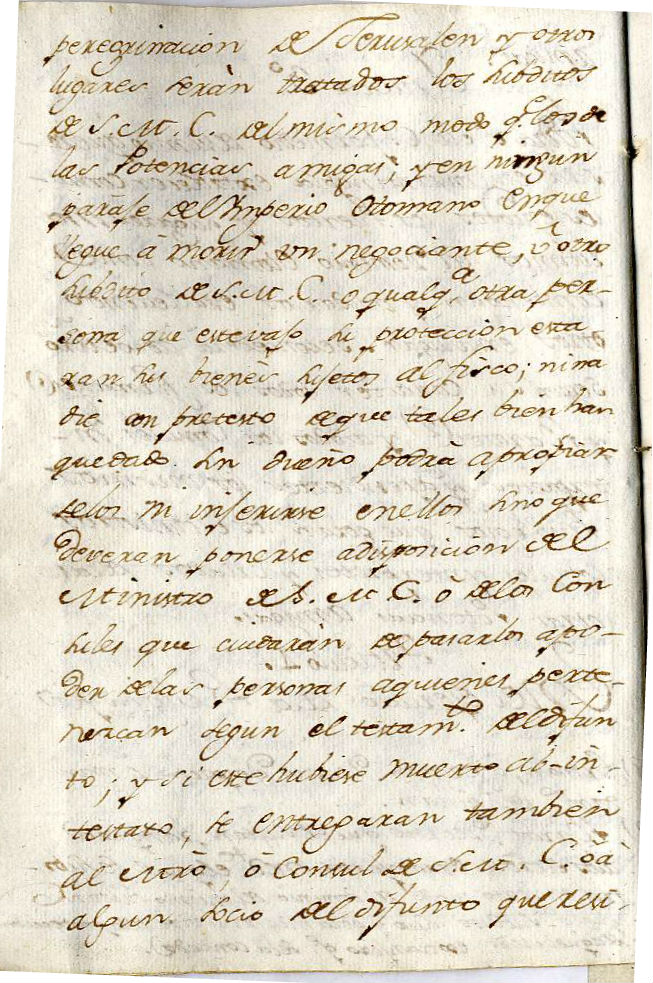 peregrinacion de Jerusalen y otros
lugares seràn tratados los subditos
de S. M. C. del mismo modo q.e los de
las Potencias amigas; y en ningun
parage del Ymperio Otomano en que
llegue à morir un negociante, ù otro
subdito de S. M. C. o qualq.a otra per-
sona que este vajo su proteccion esta
ran sus bienes sujetos al fisco; ni na
die con pretesto de que tales bien han
quedado sin dueño podrà apropiar
selos ni inferirse en ellos sino que
deveran ponerse a disposicion del
Ministro de S. M. C. ò de los Con
sules que cuidaràn de pasarlos a po-
der de las personas a quienes perte-
nezcan segun el testam.to del difun
to; y si este hubiese muerto ab-in-
testato, se entregaran tambien
al Mtrò, ò Consul de S. M. C. ò à
algun socio del difunto que resi-